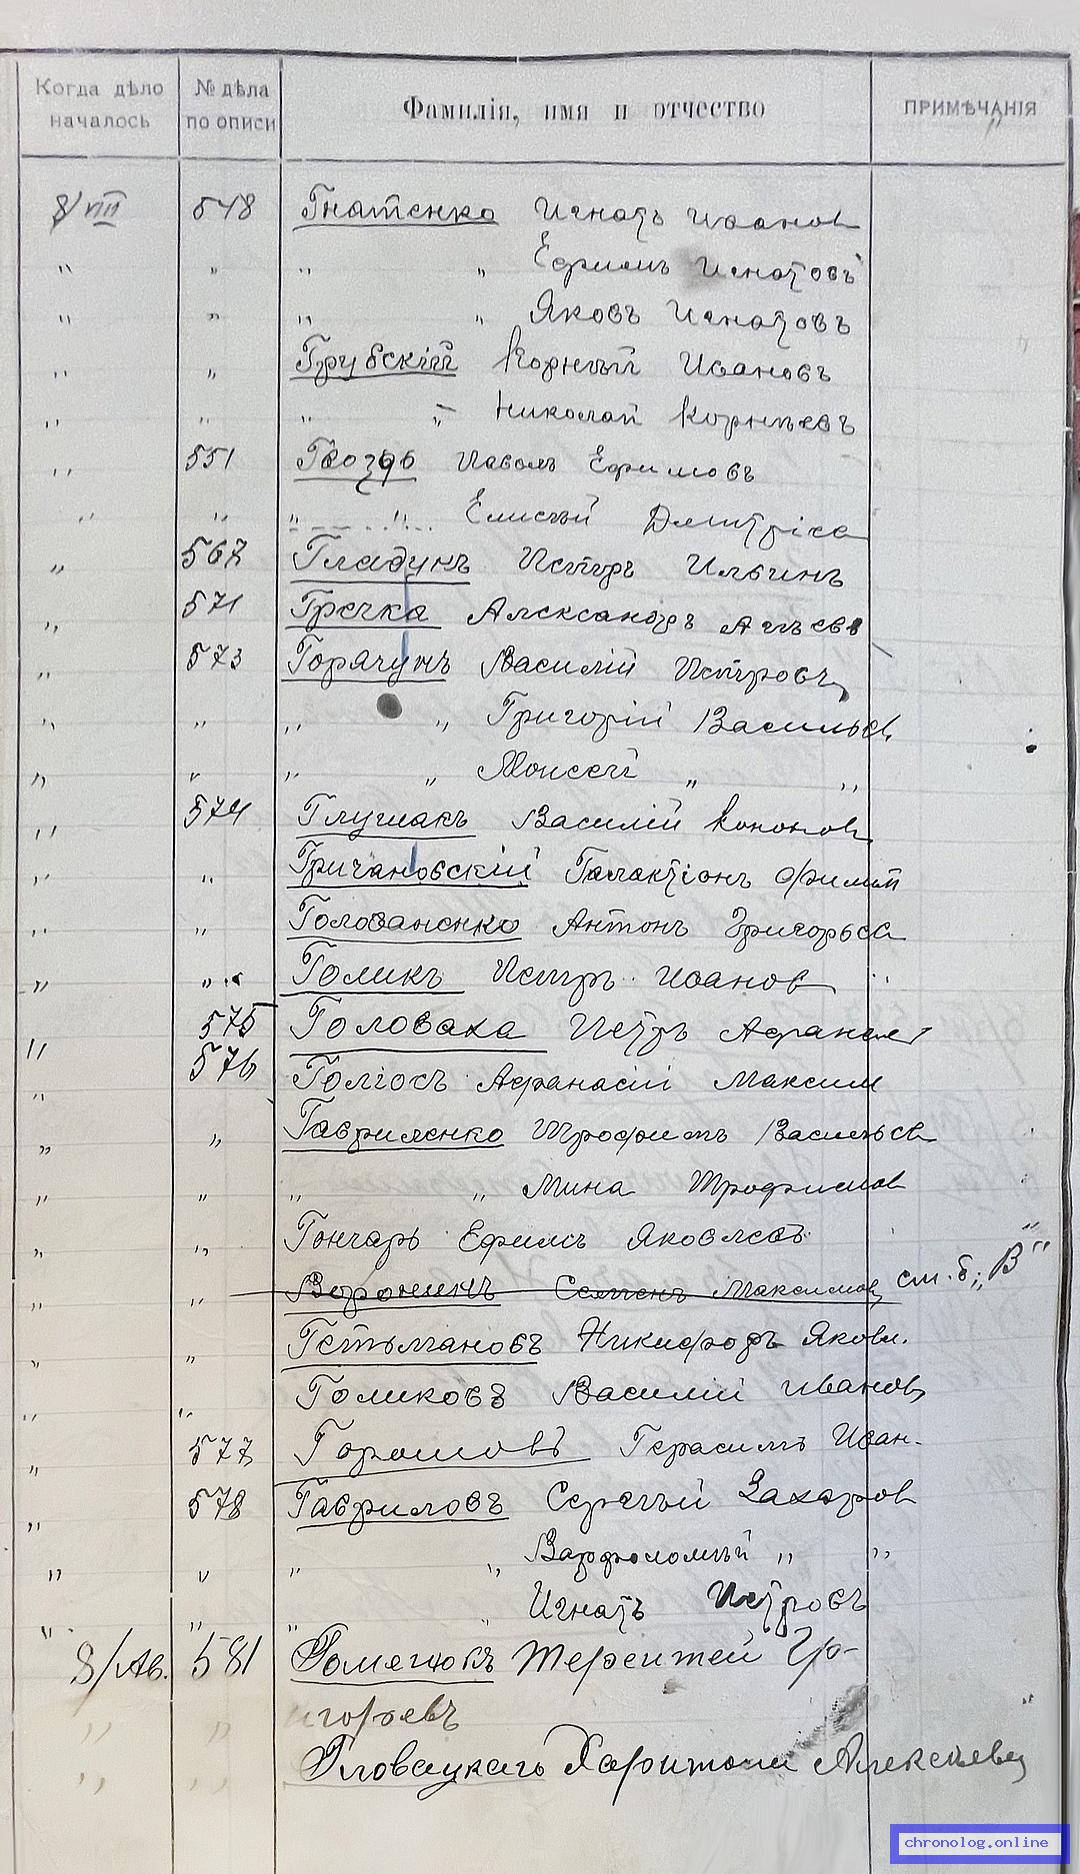 Когда дѣло началось № дѣла по описи Фамилія, имя и отчество ПРИМѢЧАНІЯ
8/VIII 548 Гнатенко Игнатъ Иванов
" " " " Ефимъ Игнатовъ
" " " " Яковъ Игнатовъ
" " Грубскій Корнѣй Ивановъ
" " " " Николай Корнѣевъ
" 551 Гвоздь Павелъ Ефимовъ
" " " " Елисѣй Дмитріев
" 567 Гладунъ Петръ Ильинъ
" 571 Гречка Александръ
" 573 Горячунъ Василій Петровъ
" " " " Григорій Васильев
" " " " Моисей " "
" 574 Глушакъ Василій Кононов
" " Гричановский Галактіонъ Филип
" " Голованенко Антонъ Григорьев
" " Голикъ Петръ Иванов
" 575 Головаха Петръ Афанас
" 576 Голіосъ Афанасій Максим
" " Гавриленко Трофимъ Васильев
" " " " Мина Трофимов
" " Гончаръ Ефимъ Яковлевъ
" " Воронинъ Семенъ Максимов см. б. „В"
" " Гетьмановъ Никифоръ Яковл.
" " Голиковъ Василій Иванов
" 577 Горошовъ Герасимъ Иван.
" 578 Гавриловъ Сергѣй Захаров
" " " " Варфоломѣй " "
" " " " Игнатъ Петровъ
8/Ав. 581 Терентей Гр-
" " игорьевъ
" " Гловацкаго Харитона Алексѣева
chronolog.online